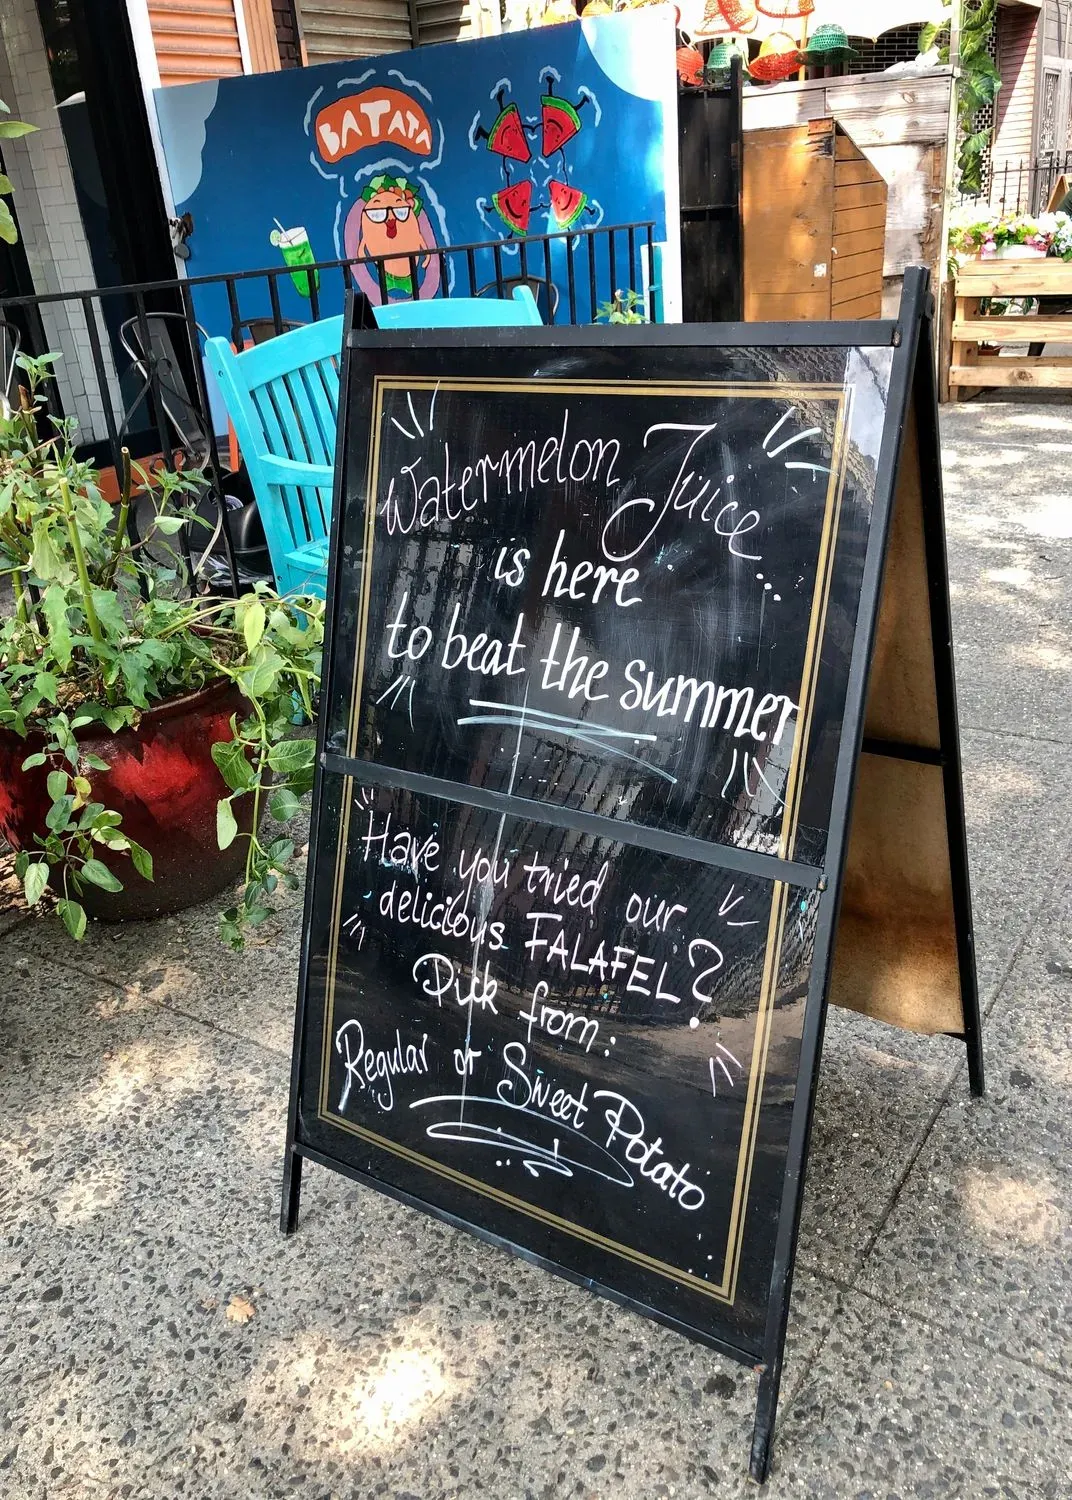 BATATA
Watermelon Juice...
is here
to beat the summer
Have you tried our
delicious FALAFEL?
Pick from:
Regular or Sweet Potato